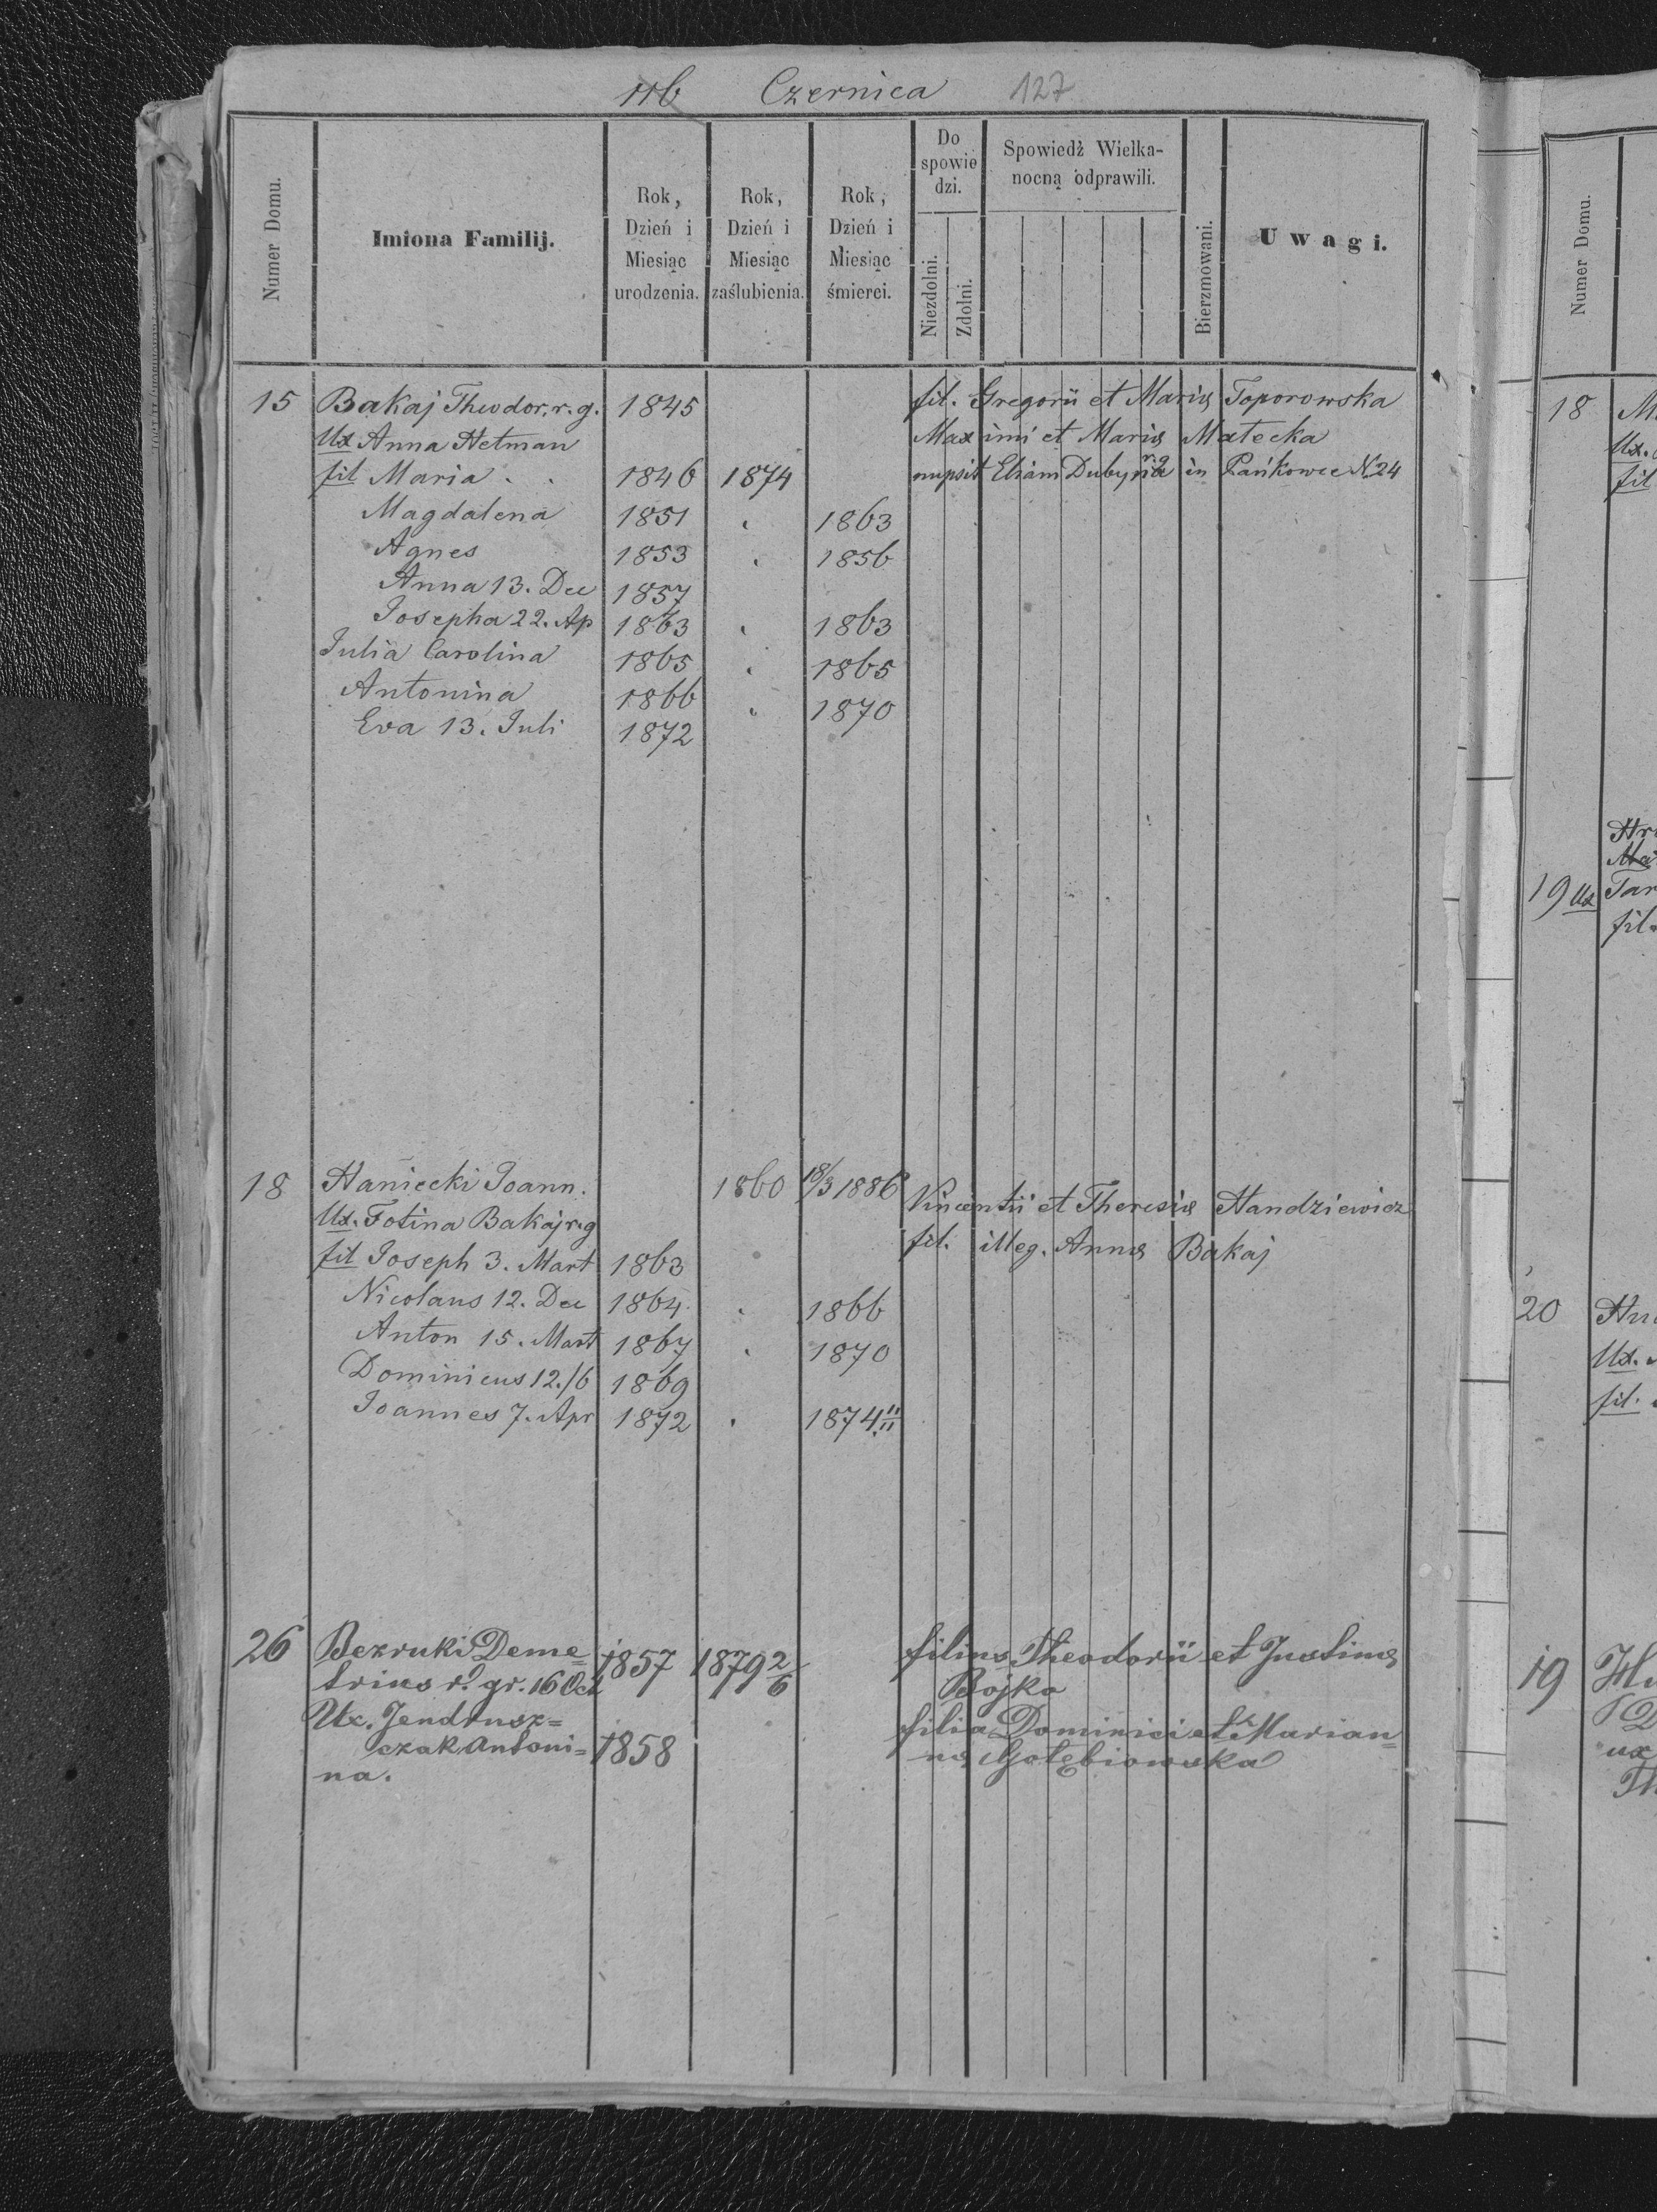 116 Czernica 127
Numer Domu.
Imiona Familij.
Rok, Dzień i Miesiąc urodzenia.
Rok, Dzień i Miesiąc zaślubienia.
Rok, Dzień i Miesiąc śmierci.
Do spowiedzi.
Niezdolni.
Zdolni.
Spowiedź Wielka-
nocną odprawili.
Bierzmowani.
Uwagi.
15 Bakaj Theodor, r. g. 1845 fil. Gregorii et Mariæ Toporowska
Ux Anna Hetman Maximi et Mariæ Matecka
fil Maria . . 1846 1874 nupsit Eliam Dubyna r.g in Pańkowce N. 24
Magdalena 1851 1863
Agnes 1853 1856
Anna 13. Dec 1857
Josepha 22. Ap 1863 1863
Julia Carolina 1865 1865
Antonina 1866 1870
Eva 13. Juli 1872
18 Haniecki Joann. 1860 18/3 1886 Vincentii et Theresiæ Handziewicz
Ux. Fotina Bakaj r. g fil. illeg. Annæ Bakaj
fil Joseph 3. Mart 1863
Nicolaus 12. Dec 1864 1866
Anton 15. Mart 1867 1870
Dominicus 12./6 1869
Joannes 7. Apr 1872 1874
26 Bezruki Deme= 1857 1879 2/6 filius Theodorii et Justinæ
trius r. gr. 16 Oct Bojko
Ux. Jendrusz= filia Dominici et Marian=
czak Antoni= 1858 næ Gołębiowska
na.
Numer Domu.
18
Ux.
fil
19 Ux
fil.
20
Ux.
fil.
19
ux